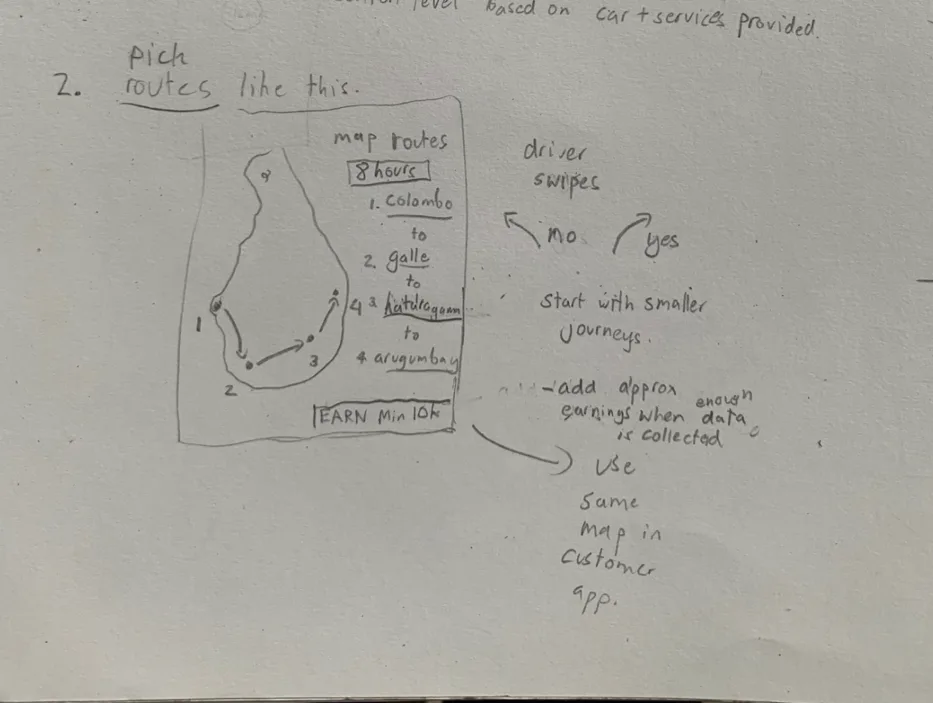 level based on car + services provided.
pick
2. routes like this.
map routes
8 hours
1. Colombo
to
2. galle
to
3
to
4. arugumbay
EARN Min 10k
1
2
3
4
driver
swipes
no
yes
Start with smaller
journeys.
- add approx enough
earnings when data
is collected
use
same
map in
customer
app.